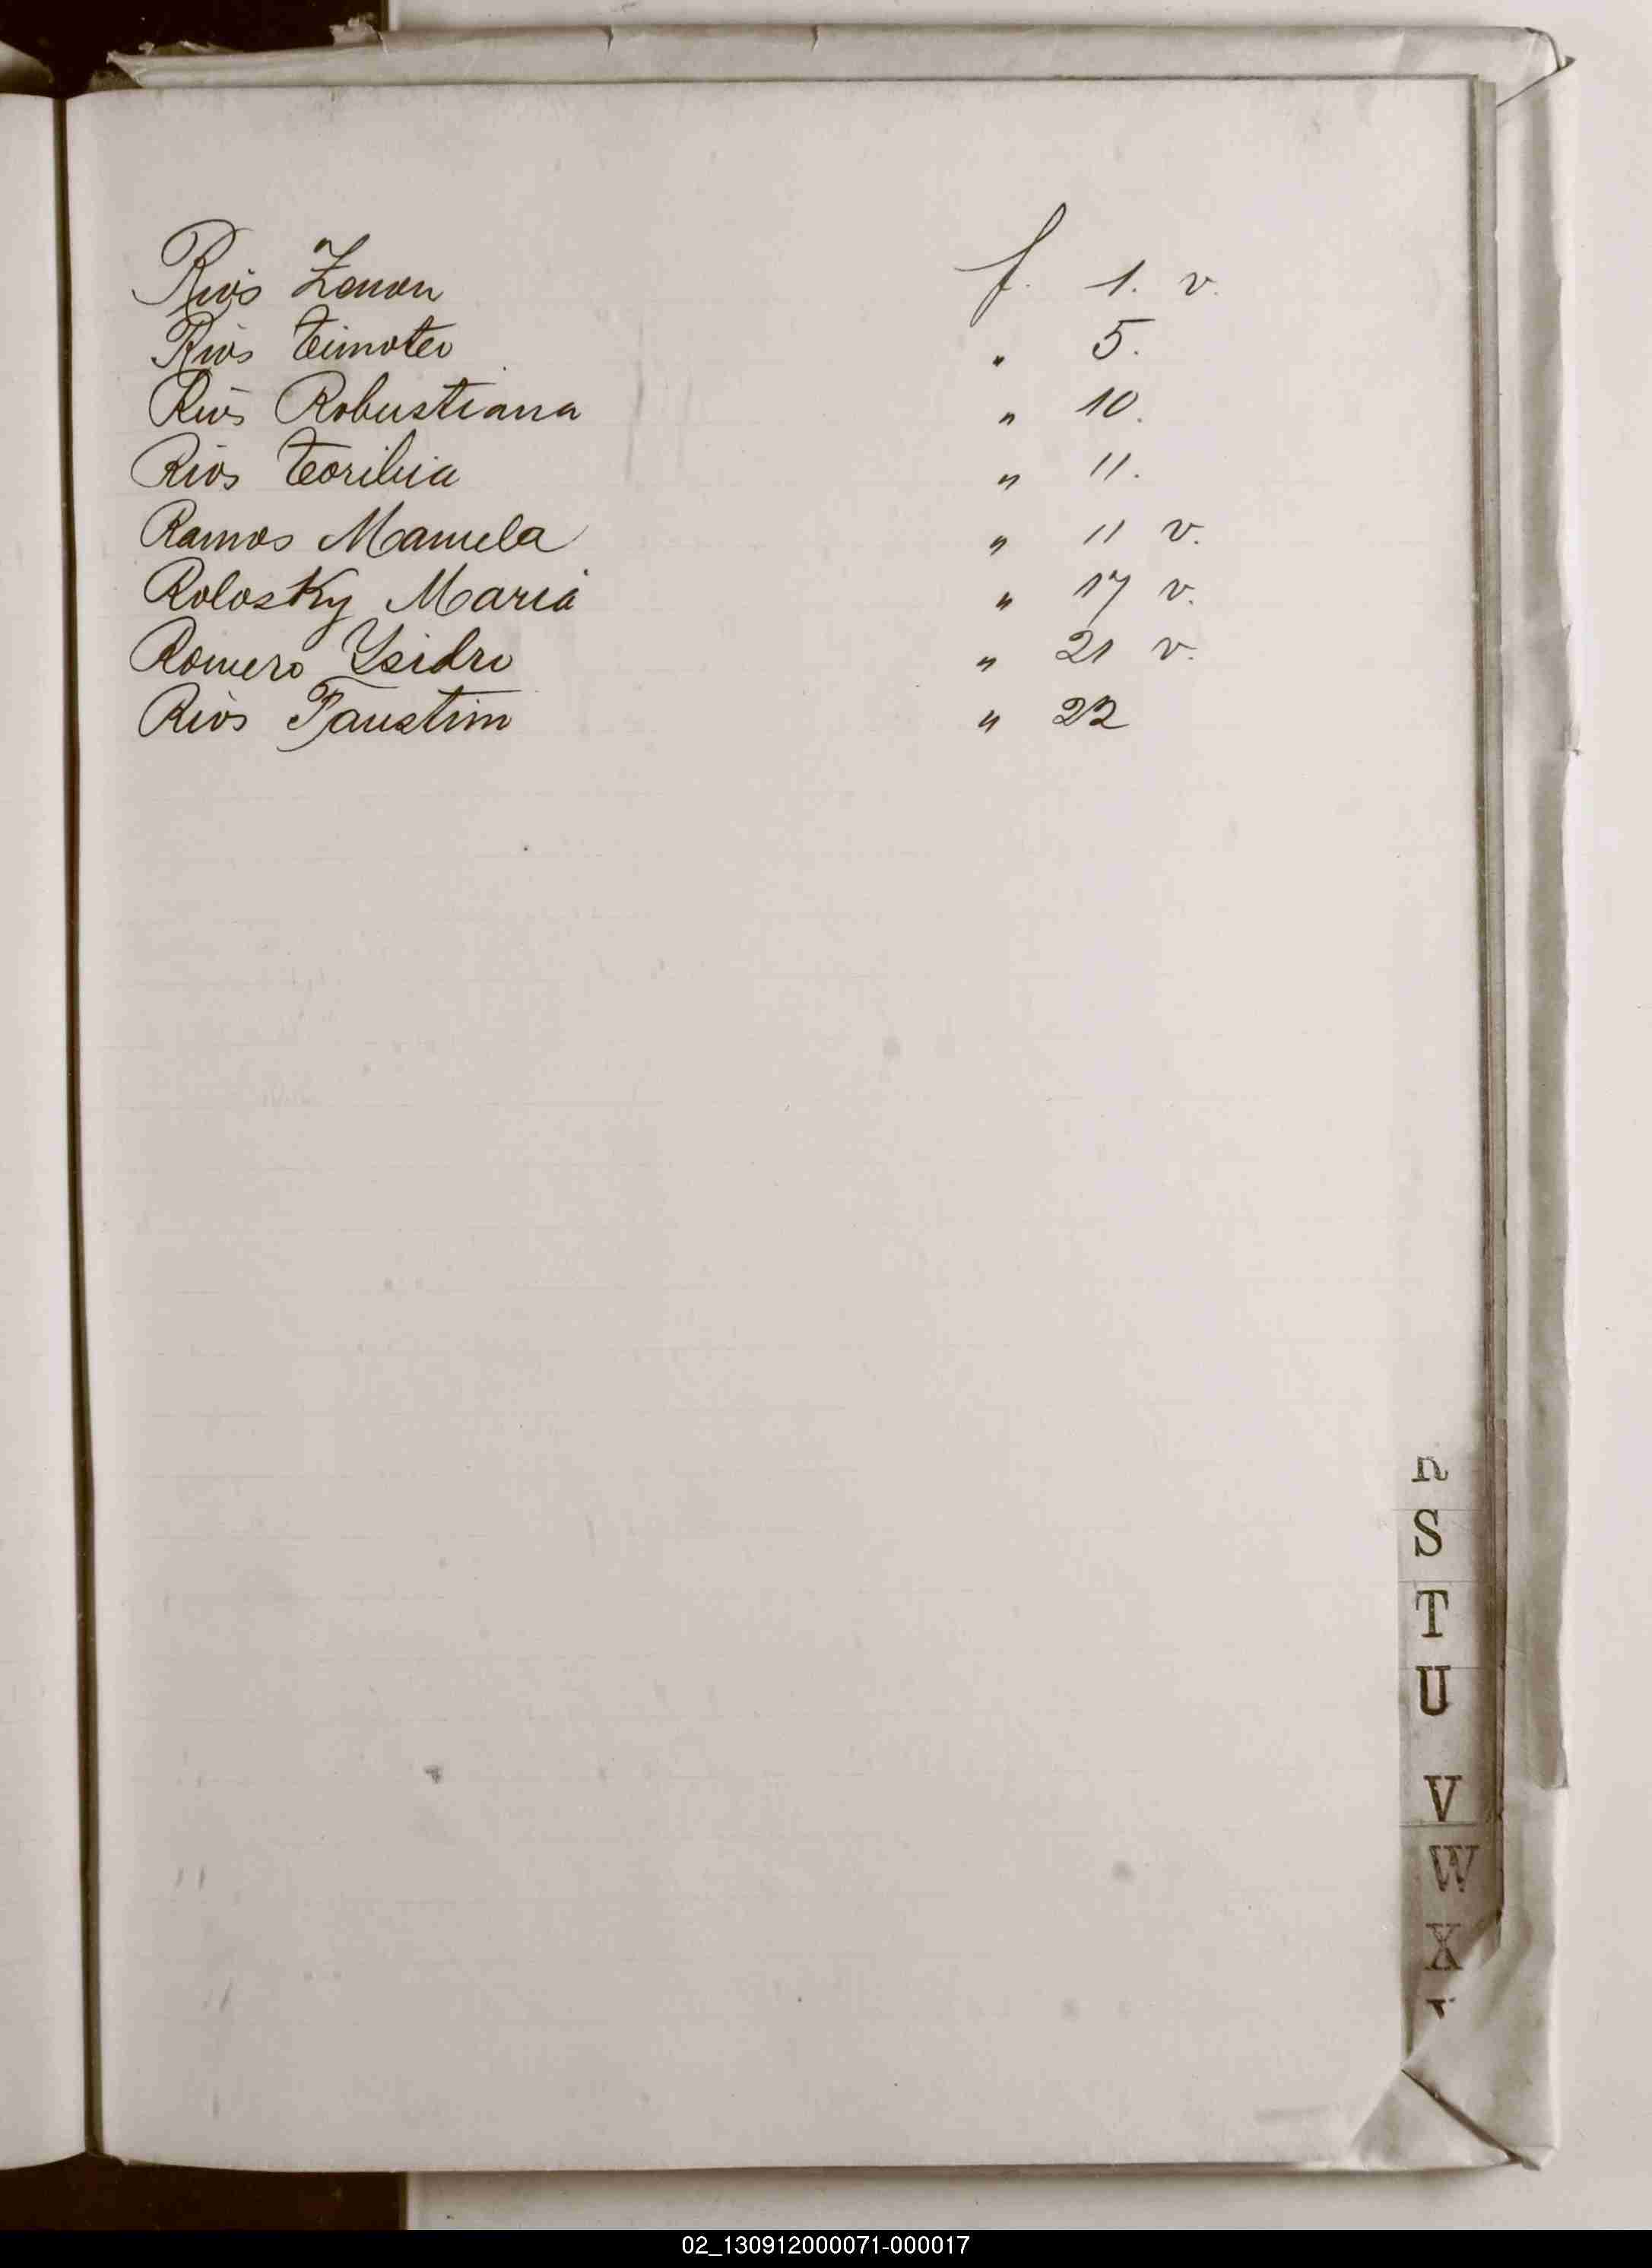 Rios Zenon f. 1. v.
Rios Timoteo " 5.
Rios Robustiana " 10.
Rios Toribia " 11.
Ramos Manuela " 11 v.
Rolosky Maria " 17 v.
Romero Ysidro " 21 v.
Rios Faustino " 22
R
S
T
U
V
W
X
02_130912000071-000017